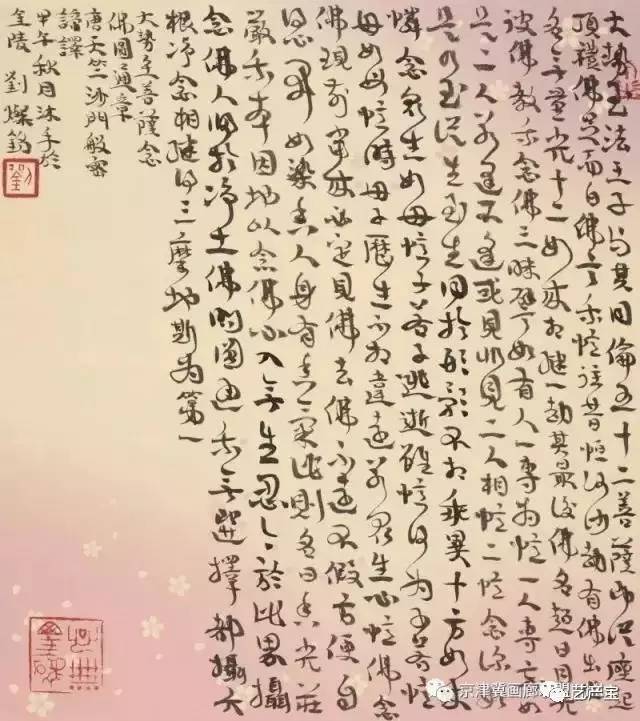 大势至法王子与其同倫五十二菩薩即從座起
頂禮佛足而白佛言我憶往昔恒河沙劫有佛出世
名無量光十二如來相繼一劫其最後佛名超日月光
彼佛教我念佛三昧譬如有人一專為憶一人專忘如
是二人若逢不逢或見非見二人相憶二憶念深如
是乃至從生至生同於形影不相乖異十方如來
憐念眾生如母憶子若子逃逝雖憶何為子若憶
母如母憶時母子歷生不相違遠若眾生心憶佛念
佛現前當來必定見佛去佛不遠不假方便自
得心開如染香人身有香氣此則名曰香光莊
嚴我本因地以念佛心入無生忍今於此界攝
念佛人歸於淨土佛問圓通我無選擇都攝六
根淨念相繼得三摩地斯為第一
大勢至菩薩念
佛圓通章
唐天竺沙門般剌密
諦譯
甲午秋月沐手於
金陵 劉燦銘
劉
京津冀画廊联盟
艺产宝